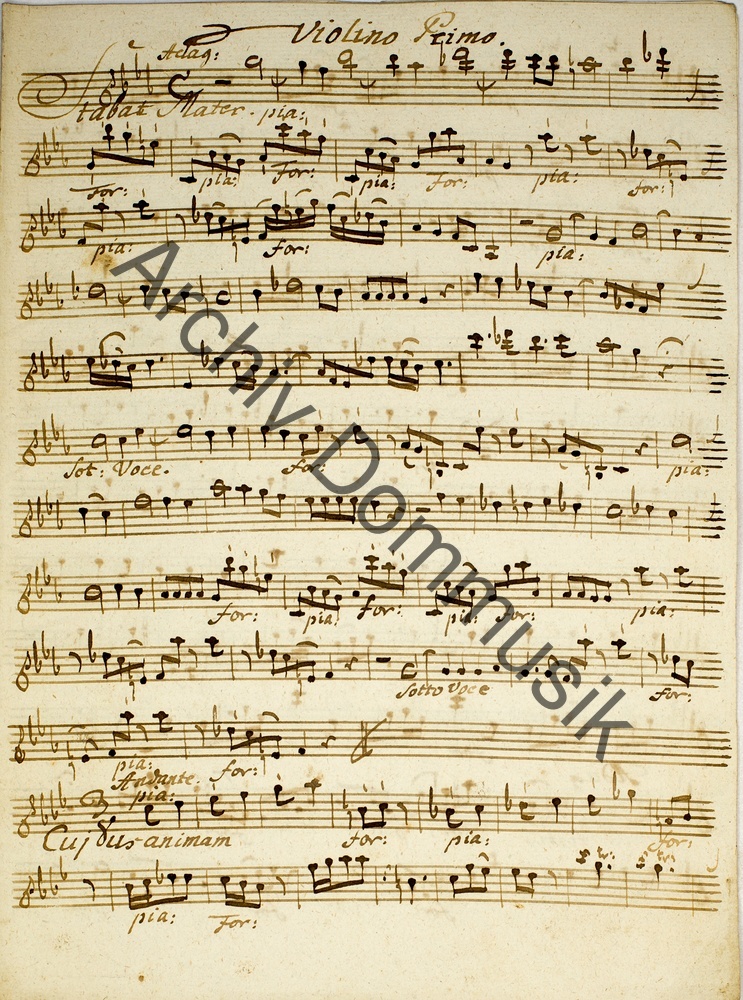 Violino Primo.
Adag:
Stabat Mater. pia:
For: pia: For: pia: For: pia: For:
pia: For: pia:
Sot: Voce. For: pia:
For: pia: For: pia: For: pia:
Sotto Voce For:
pia: For:
Andante.
pia:
Cujus animam For: pia: For:
tr: tr:
pia: For:
Archiv Dommusik